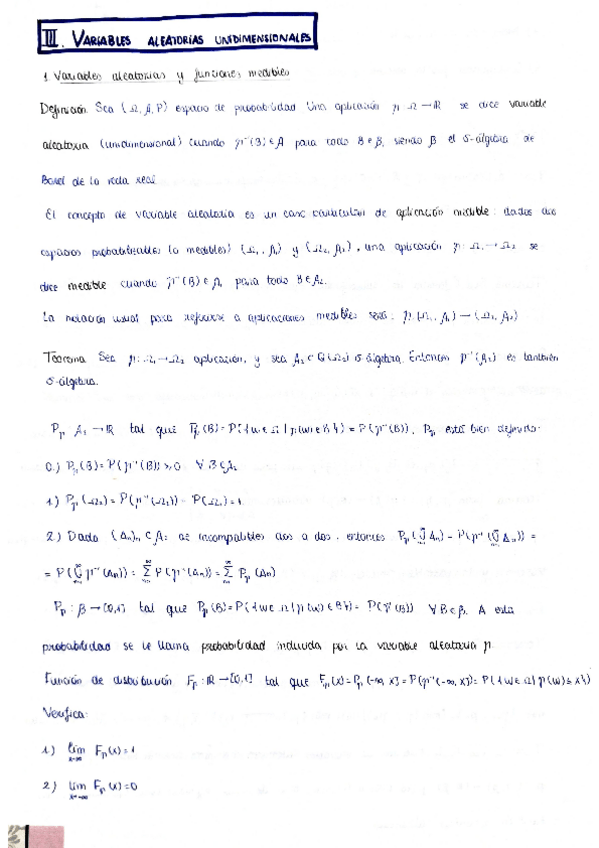 III. VARIABLES ALEATORIAS UNIDIMENSIONALES
1. Variables aleatorias y funciones medibles
Definición Sea (Ω, A, P) espacio de probabilidad. Una aplicación η: Ω → ℝ se dice variable
aleatoria (unidimensional) cuando η⁻¹(B) ∈ A para todo B ∈ β, siendo β el σ-álgebra de
Borel de la recta real.
El concepto de variable aleatoria es un caso particular de aplicación medible: dados dos
espacios probabilizables (o medibles) (Ω₁, A₁) y (Ω₂, A₂), una aplicación η: Ω₁ → Ω₂ se
dice medible cuando η⁻¹(B) ∈ A₁ para todo B ∈ A₂.
La notación usual para referirse a aplicaciones medibles será: η: (Ω₁, A₁) → (Ω₂, A₂)
Teorema Sea η: Ω₁ → Ω₂ aplicación, y sea A₂ ⊂ (Ω₂) σ-álgebra. Entonces η⁻¹(A₂) es también
σ-álgebra.
Pη A₂ → ℝ tal que Pη(B) = P({w ∈ Ω | η(w) ∈ B}) = P(η⁻¹(B)). Pη está bien definida:
0.) Pη(B) = P(η⁻¹(B)) ≥ 0 ∀ B ∈ A₂
1.) Pη(Ω₂) = P(η⁻¹(Ω₂)) = P(Ω₁) = 1.
2.) Dado (Aₙ)ₙ ⊂ A₂ incompatibles dos a dos, entonces Pη(⋃Aₙ) = P(η⁻¹(⋃Aₙ)) =
= P(⋃η⁻¹(Aₙ)) = Σ P(η⁻¹(Aₙ)) = Σ Pη(Aₙ)
Pη: β → [0,1] tal que Pη(B) = P({w ∈ Ω | η(w) ∈ B}) = P(η⁻¹(B)) ∀ B ∈ β. A esta
probabilidad se le llama probabilidad inducida por la variable aleatoria η.
Función de distribución Fη: ℝ → [0,1] tal que Fη(x) = Pη(-∞, x] = P(η⁻¹(-∞, x]) = P({w ∈ Ω | η(w) ≤ x})
Verifica:
1.) lim x→∞ Fη(x) = 1
2.) lim x→-∞ Fη(x) = 0